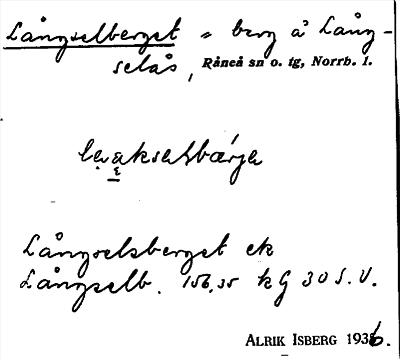 Långselberget = berg å Lång-
selås, Råneå sn o. tg, Norrb. l.
Långselsberget ek
Långselb. 156,35 kG 30 S.V.
ALRIK ISBERG 1936.